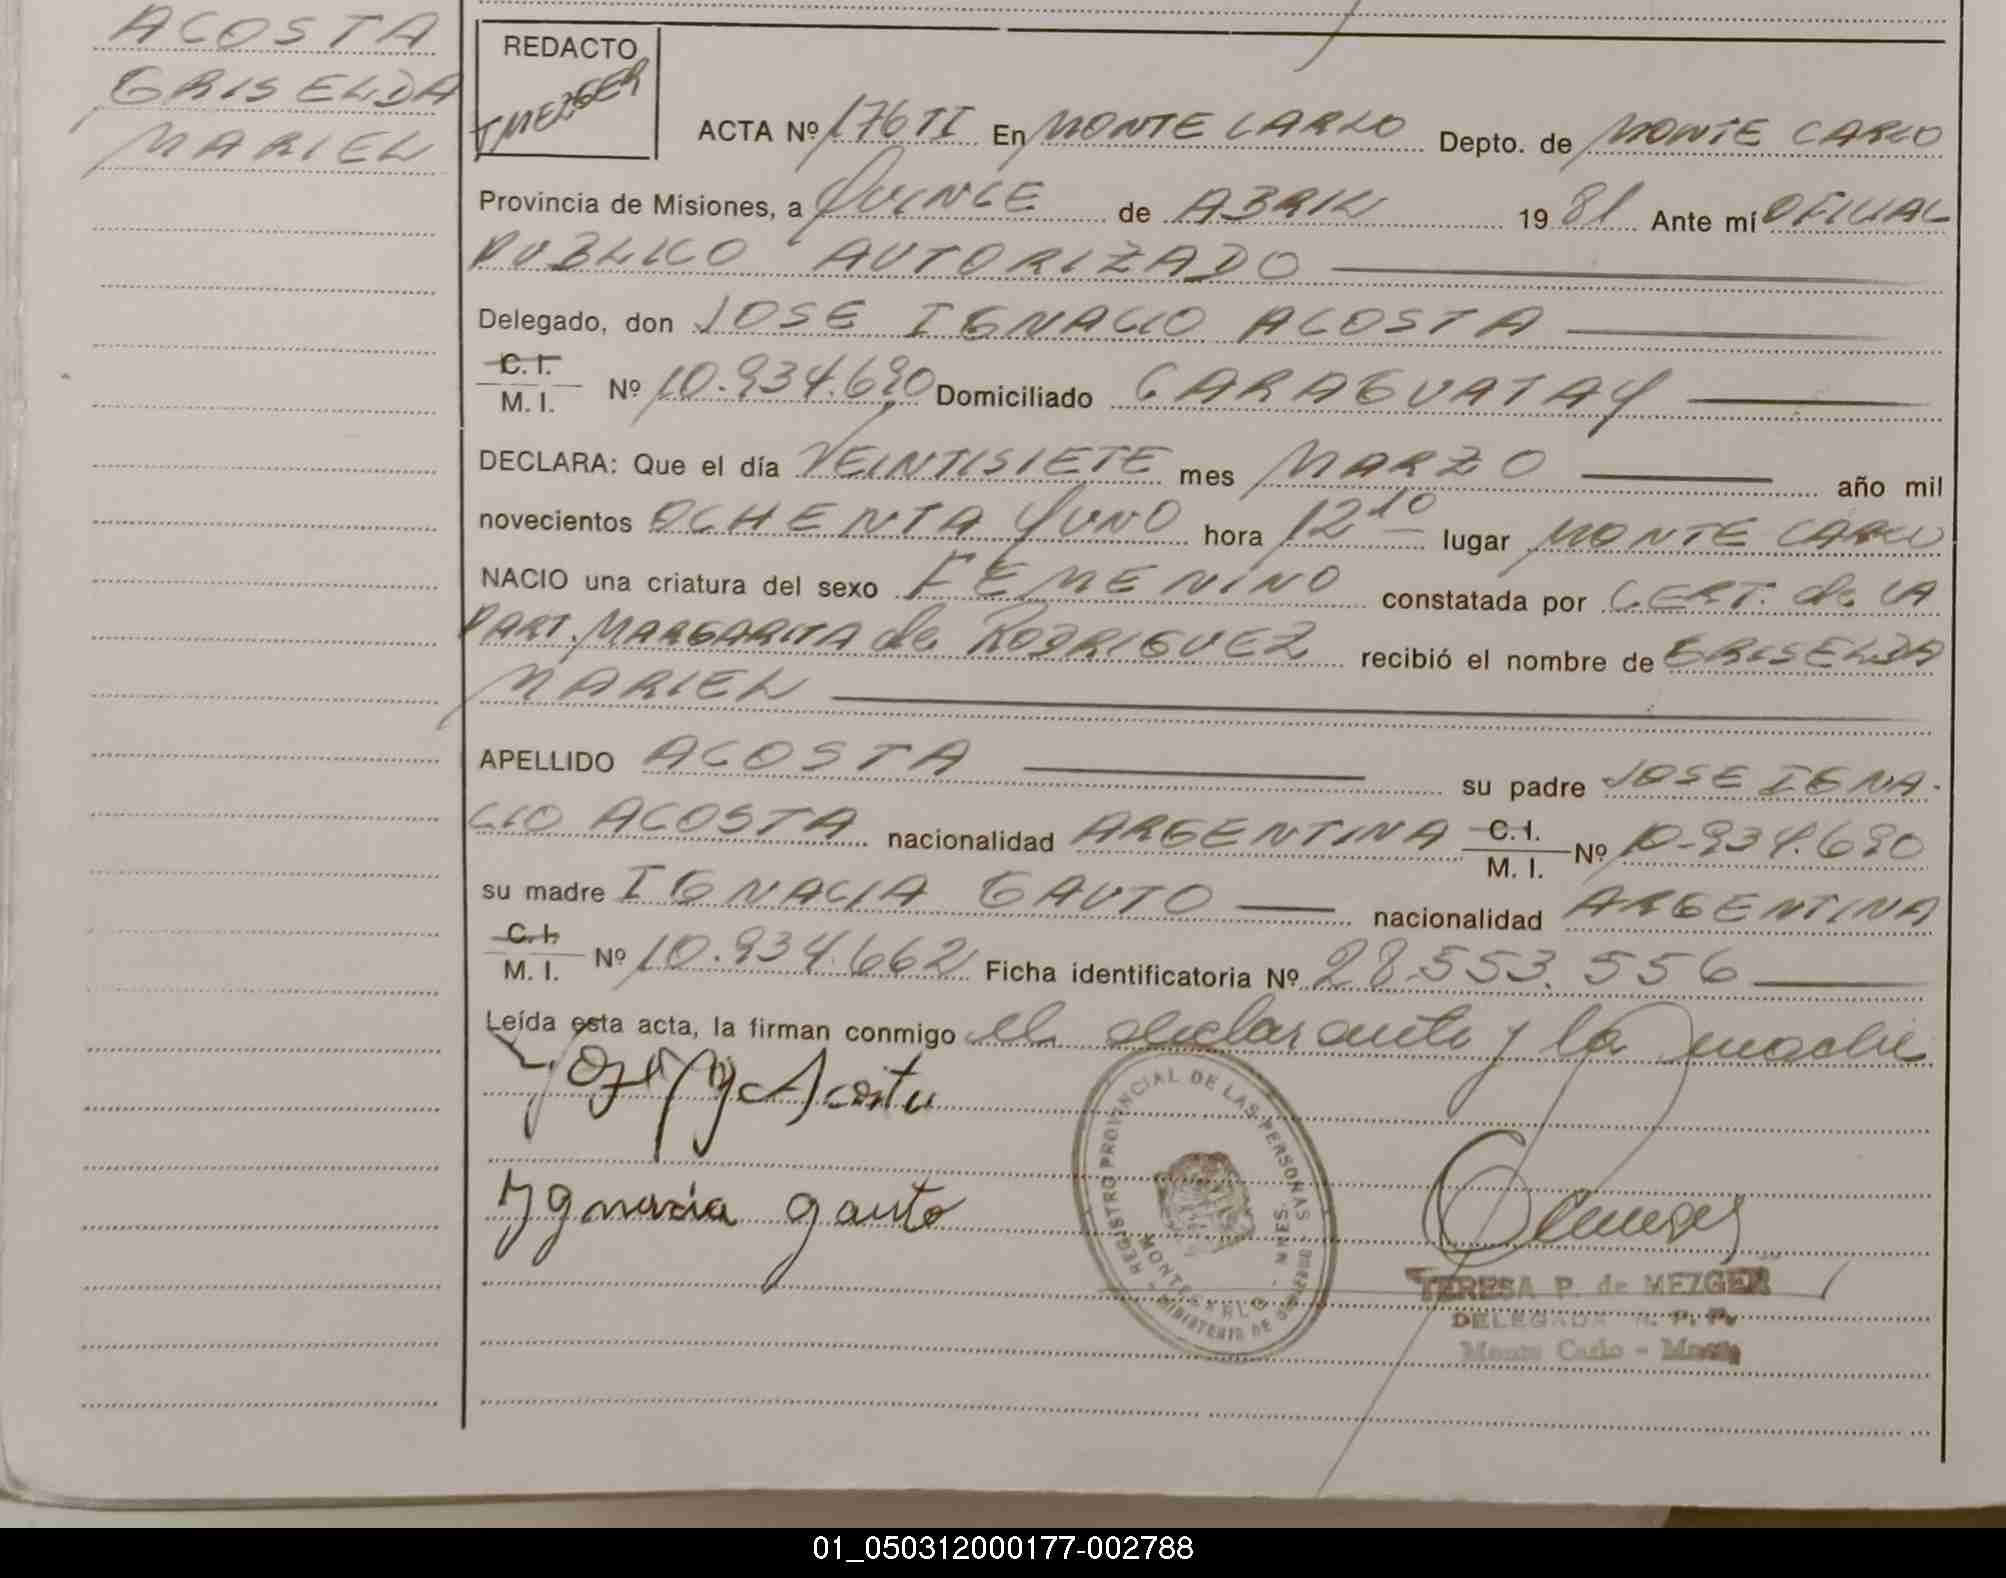 ACOSTA
GRISELDA
MARIEL
REDACTO
TMEZGER
ACTA Nº 176 TI En MONTE CARLO Depto. de MONTE CARLO
Provincia de Misiones, a QUINCE de ABRIL 19 81 Ante mí OFICIAL
PUBLICO AUTORIZADO
Delegado, don JOSE IGNACIO ACOSTA
C. I.
M. I. Nº 10.934.690 Domiciliado CARAGUATAY
DECLARA: Que el día VEINTISIETE mes MARZO año mil
novecientos OCHENTA Y UNO hora 12 10 lugar MONTE CARLO
NACIO una criatura del sexo FEMENINO constatada por CERT. de LA
PART. MARGARITA de RODRIGUEZ recibió el nombre de GRISELDA
MARIEL
APELLIDO ACOSTA su padre JOSE IGNA-
CIO ACOSTA nacionalidad ARGENTINA C. I. M. I. Nº 10.934.690
su madre IGNACIA GAUTO nacionalidad ARGENTINA
C. I.
M. I. Nº 10.934.662 Ficha identificatoria Nº 28.553.556
Leída esta acta, la firman conmigo el declarante y la madre
Acosta
Ygnacia gauto
REGISTRO PROVINCIAL DE LAS PERSONAS
MINISTERIO DE GOBIERNO
TERESA P. de MEZGER
DELEGADA R. P. P.
Monte Carlo - Mnes
01_050312000177-002788